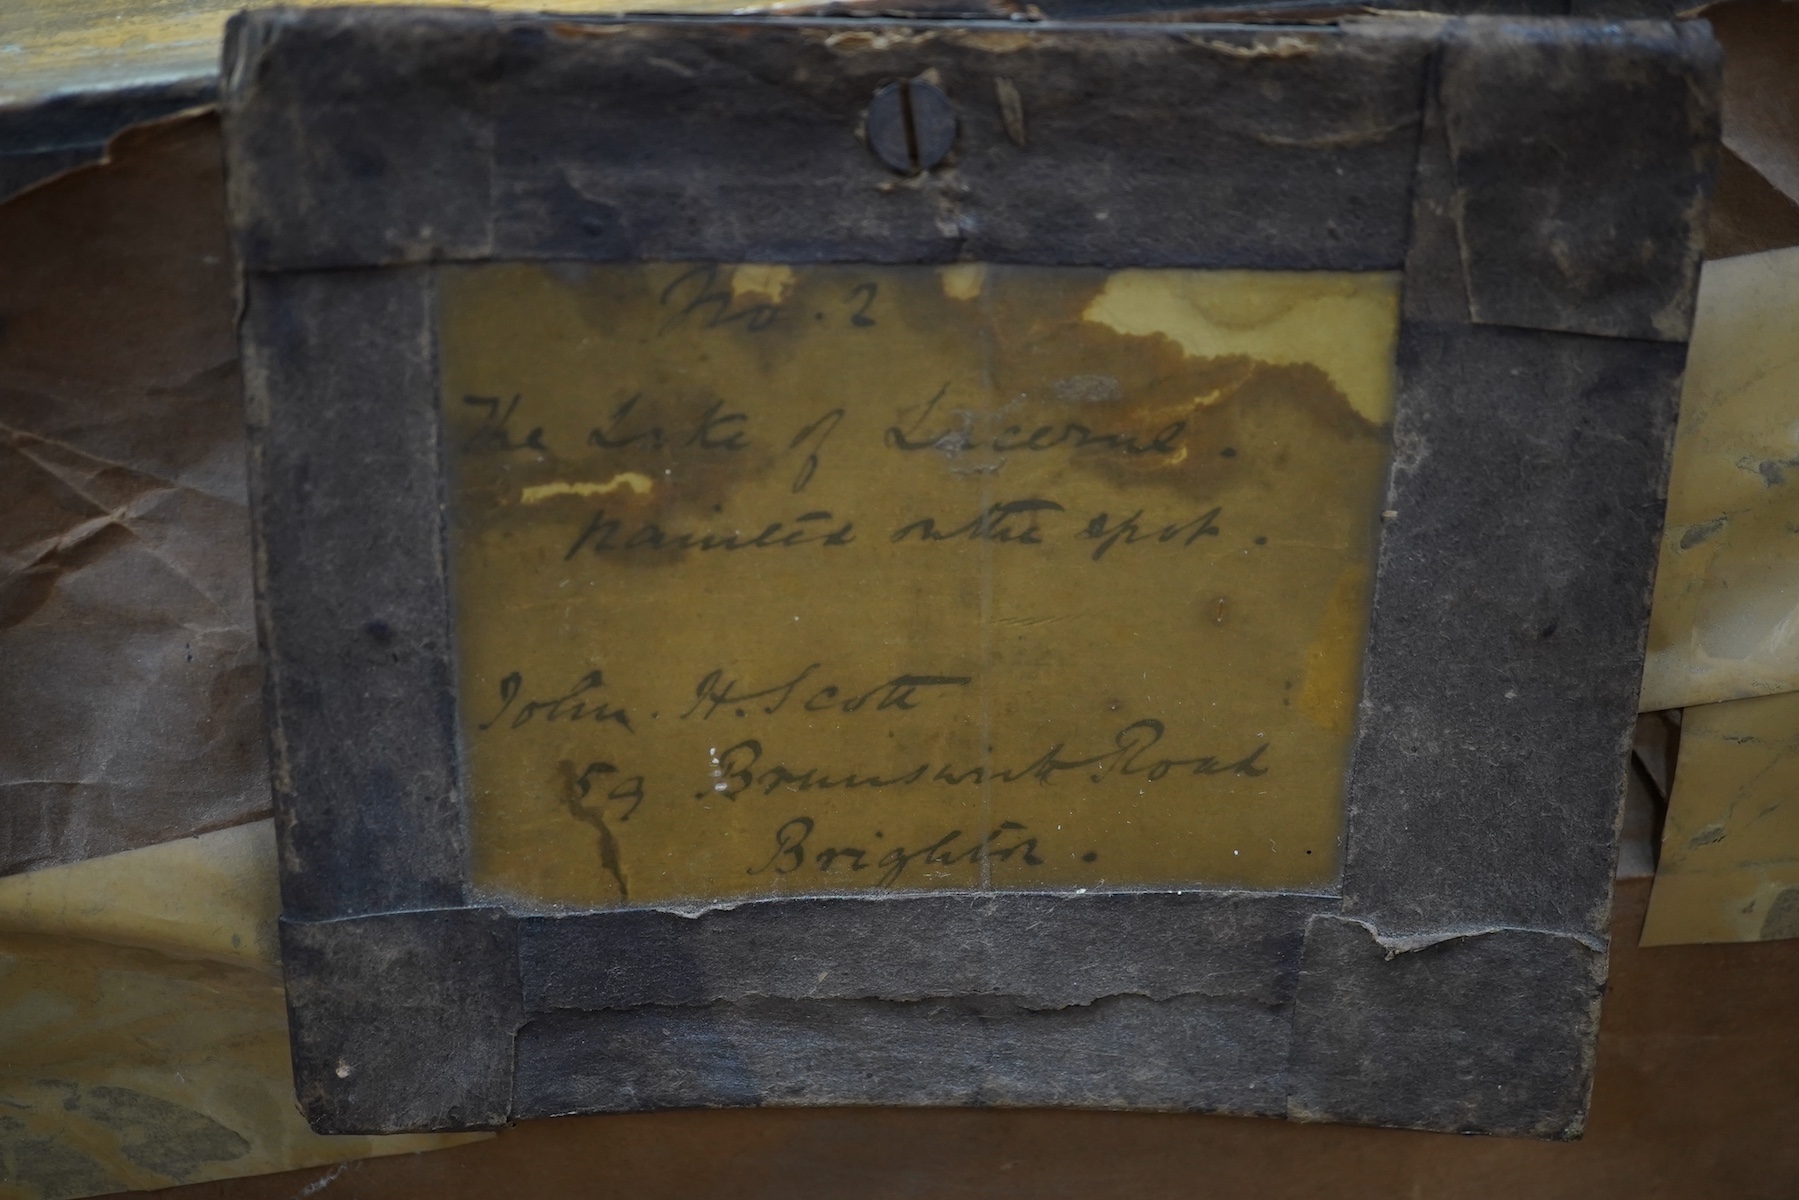 No. 2
The Lake of Lucerne.
painted on the spot.
John. H. Scott
Brunswick Road
Brighton.